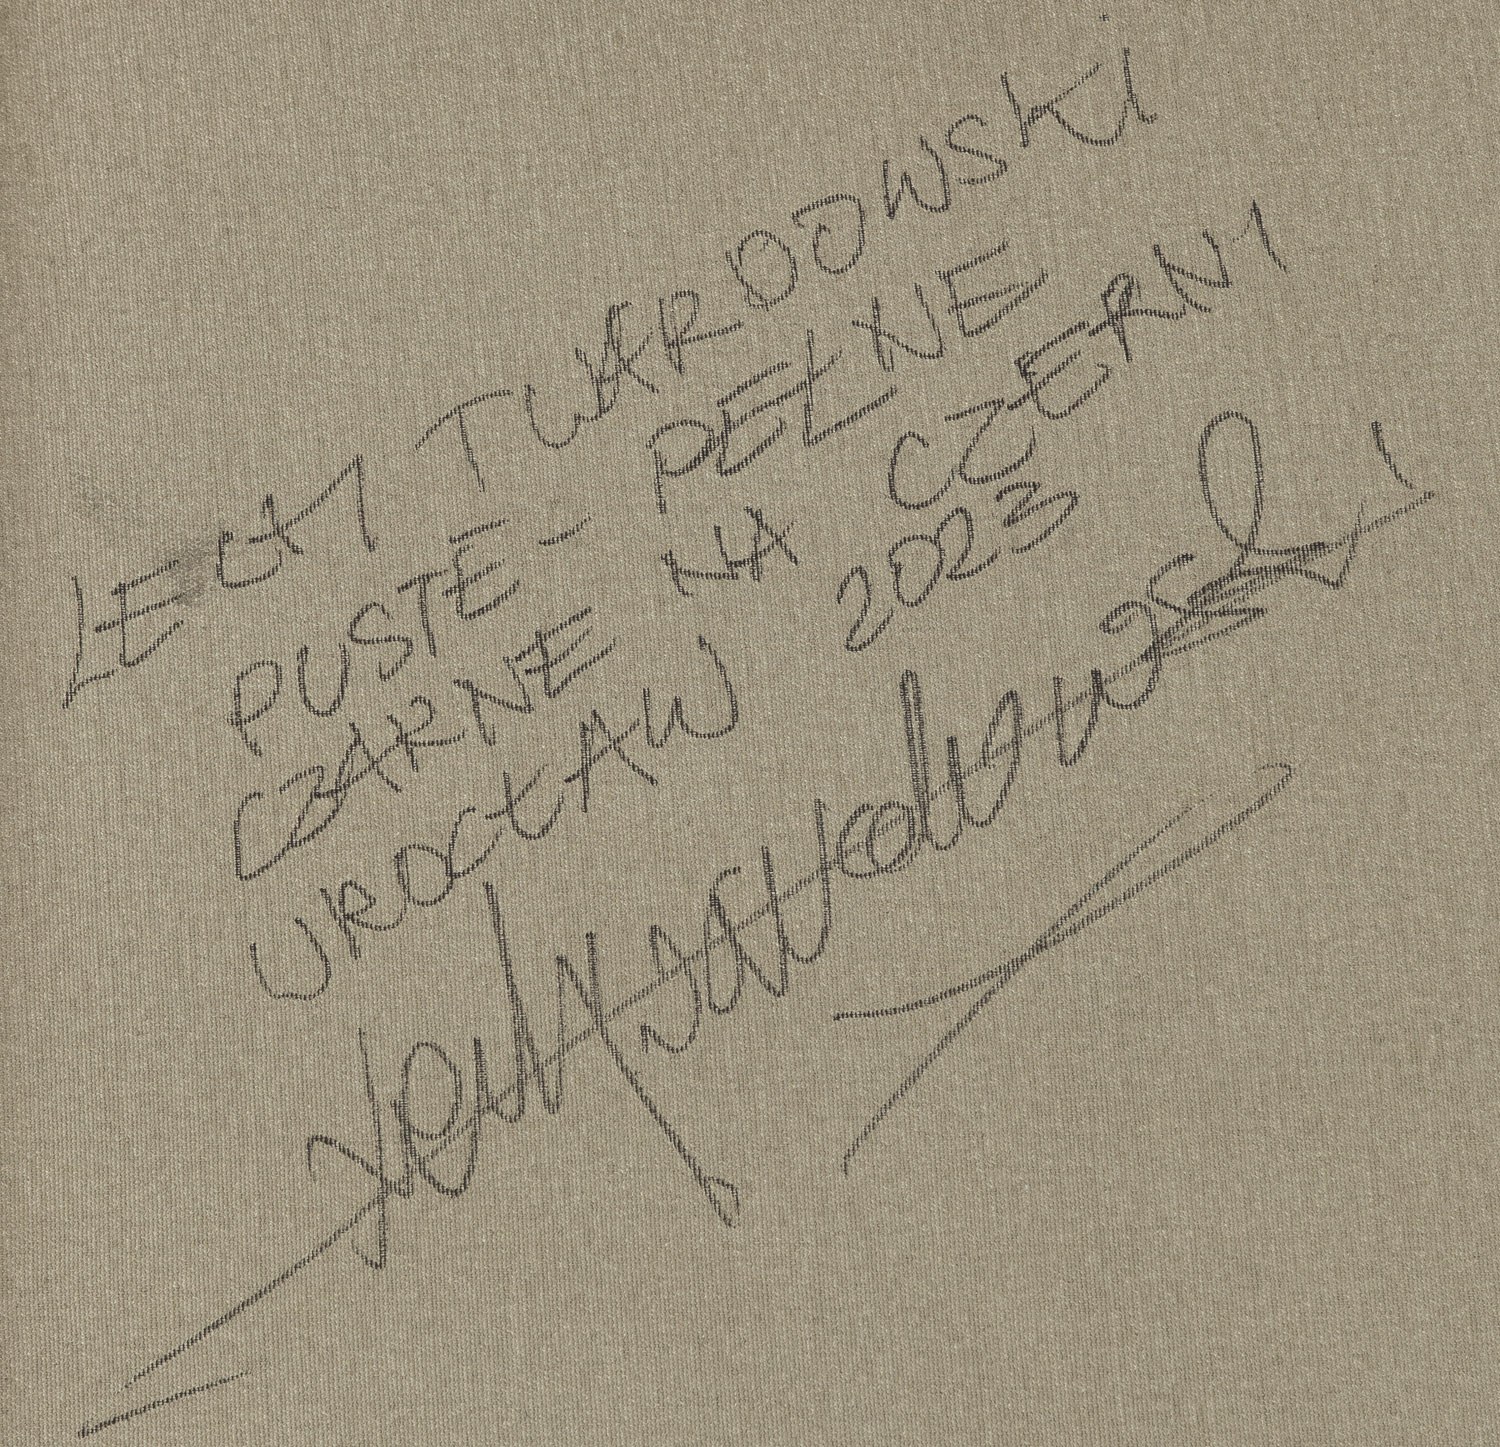 LECH TWARDOWSKI
PUSTE - PEŁNE
CZARNE NA CZERNI
WROCŁAW 2023
Lech Twardowski